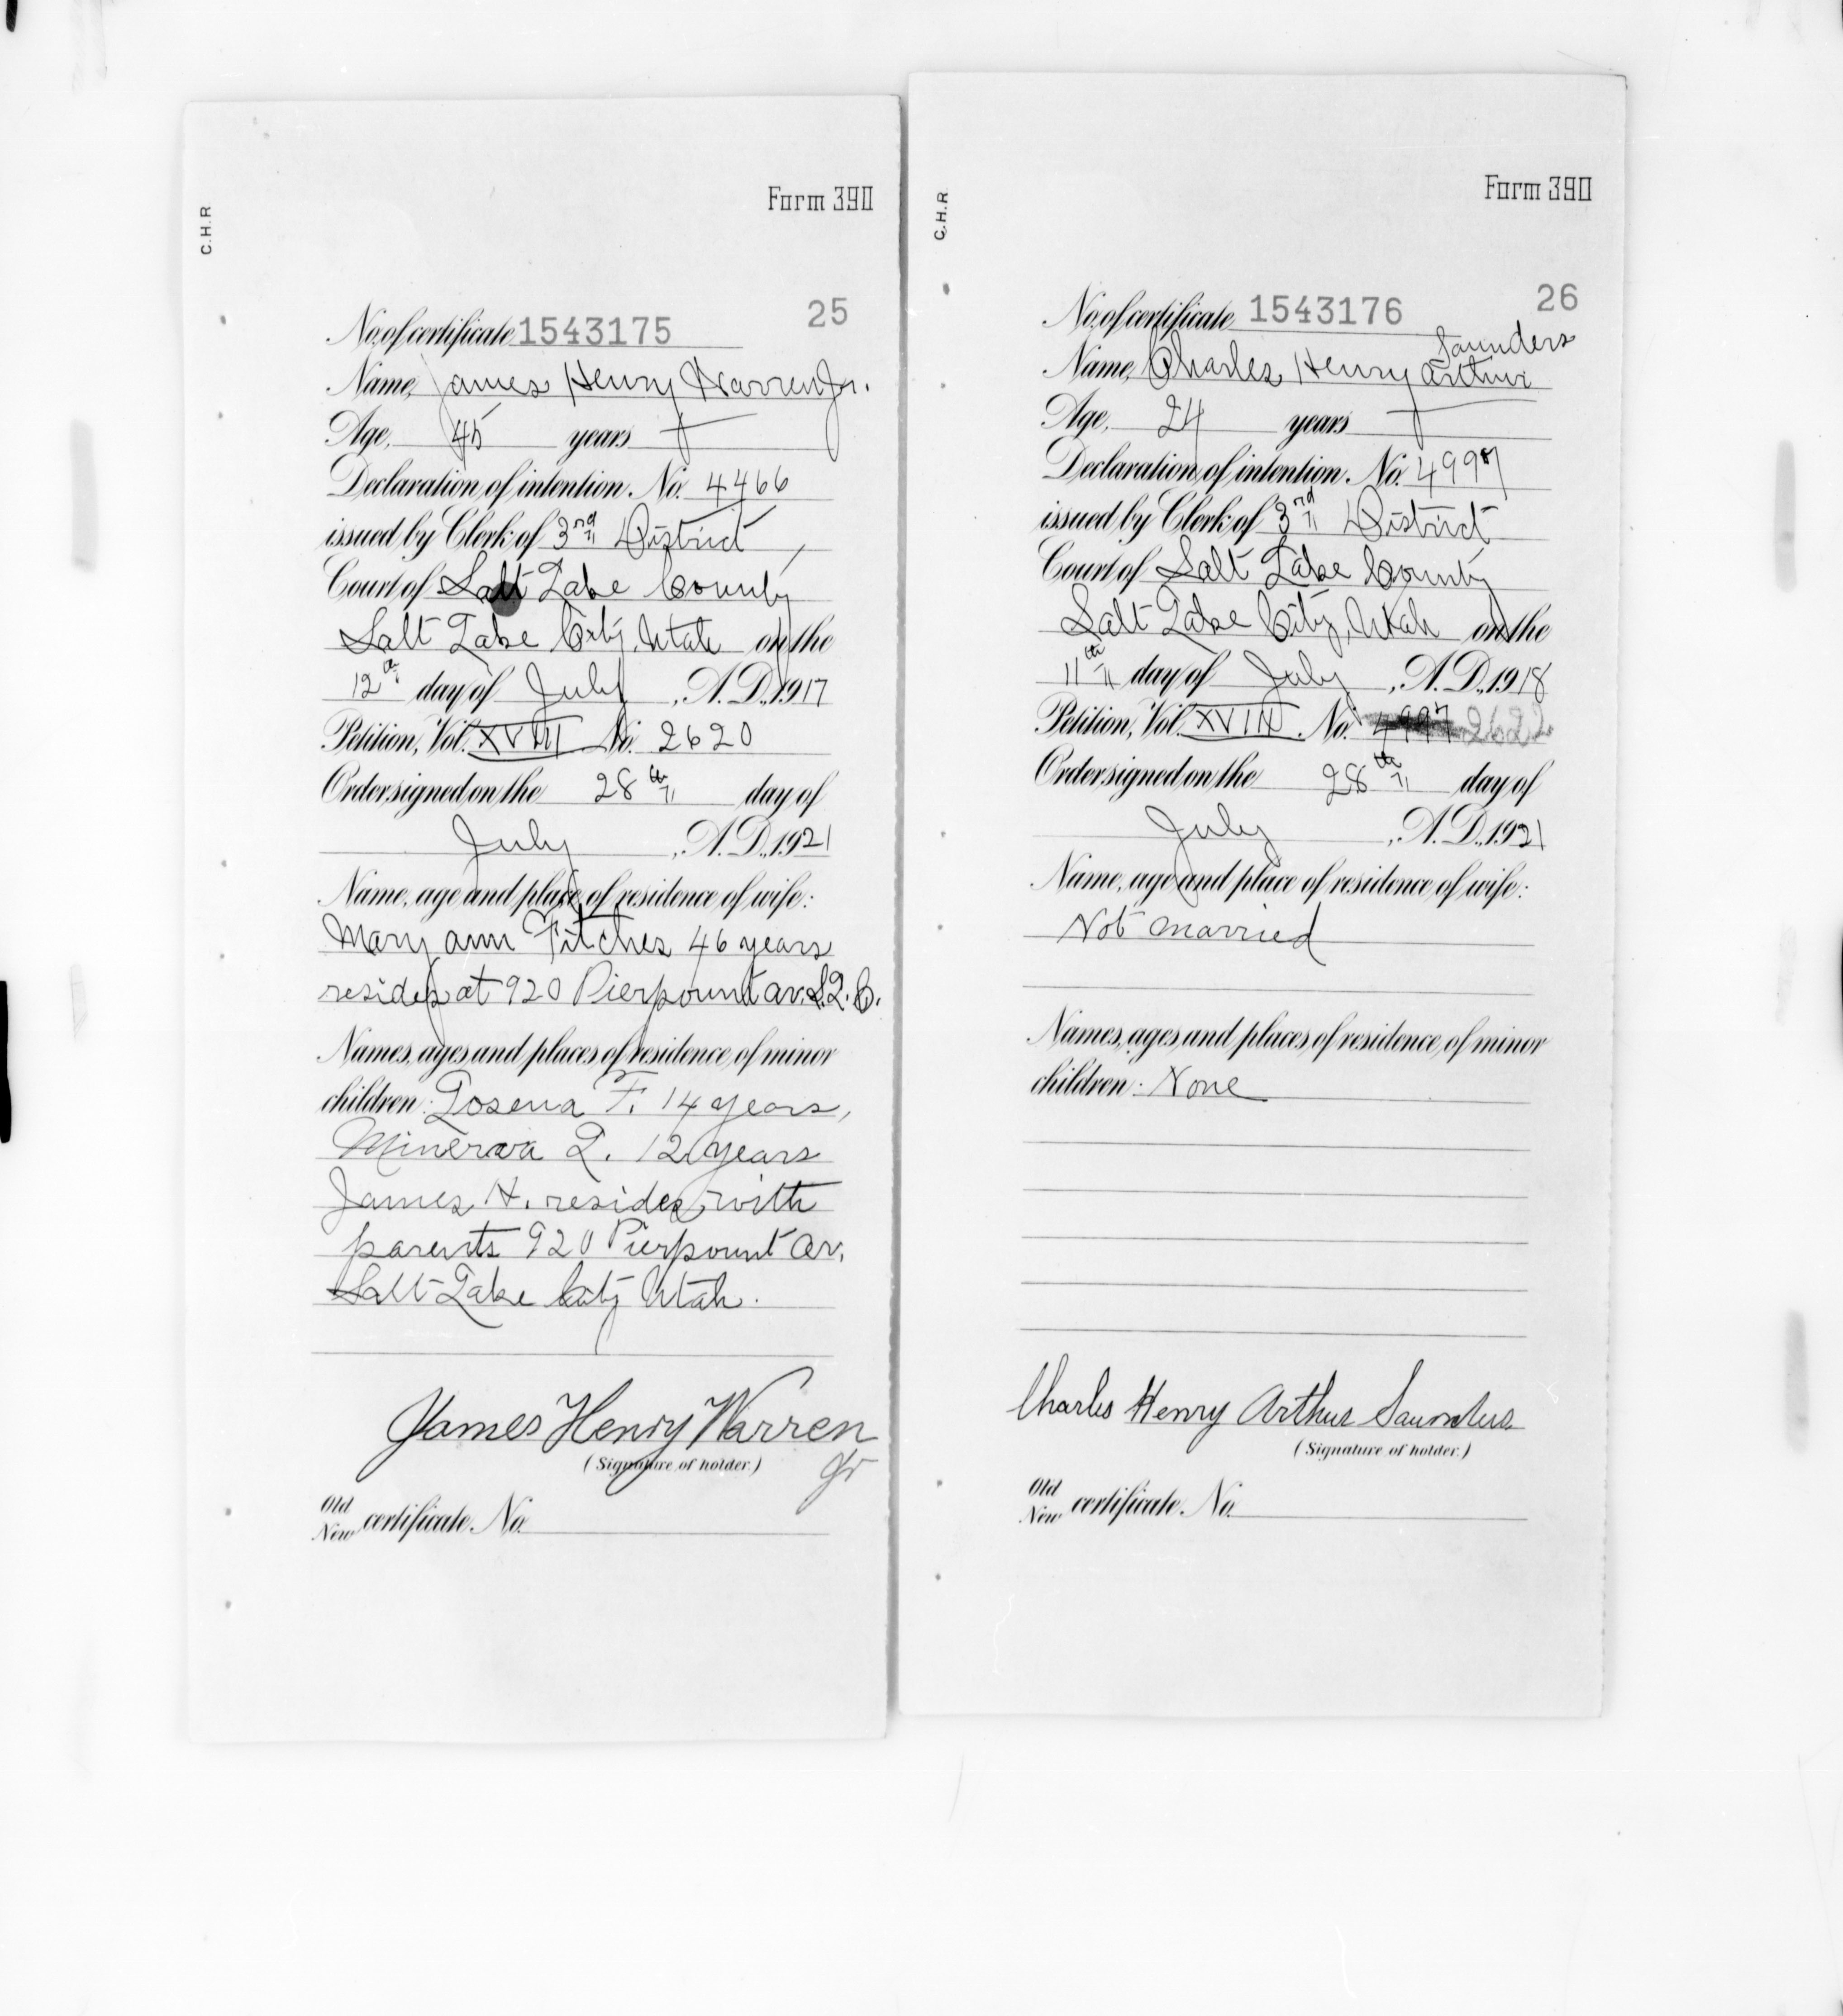 C.H.R
Form 390
25
No. of certificate 1543175
Name, James Henry Warren Jr.
Age, 45 years
Declaration of intention. No. 4466
issued by Clerk of 3rd District
Court of Salt Lake County
Salt Lake City, Utah on the
12th day of July, A.D., 1917
Petition, Vol. XVIII No. 2620
Order signed on the 28th day of
July, A.D., 1921
Name, age and place of residence of wife:
Mary Ann Fitches 46 years
resides at 920 Pierpount av. S.L.C.
Names, ages and places of residence of minor
children: Losena F. 14 years,
Minerva L. 12 years
James H. resides with
parents 920 Pierpount av.
Salt Lake City Utah.
James Henry Warren
Jr
(Signature of holder.)
Old
New certificate. No.
C.H.R
Form 390
26
No. of certificate 1543176
Saunders
Name, Charles Henry Arthur
Age, 24 years
Declaration of intention. No. 4997
issued by Clerk of 3rd District
Court of Salt Lake County
Salt Lake City, Utah on the
11th day of July, A.D., 1918
Petition, Vol. XVIII. No. 4997 2622
Order signed on the 28th day of
July, A.D., 1921
Name, age and place of residence of wife:
Not married
Names, ages and places of residence of minor
children: None
Charles Henry Arthur Saunders
(Signature of holder.)
Old
New certificate. No.